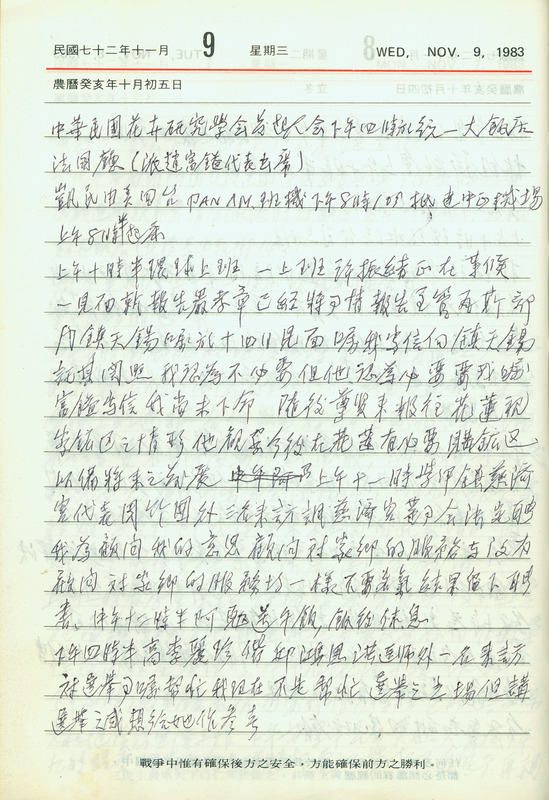 民國七十二年十一月 9 星期三 WED, NOV. 9, 1983
農曆癸亥年十月初五日
中華民國花卉研究學會發起人會下午四時於統一大飯店
法國廳(派趙富鎰代表出席)
凱民由美回台PAN AM.班機下午8時10分抵達中正機場
上午8時半起床
上午十時半環球上班 一上班許振緒正在等候
一見面就報告嚴孝章已經將事情報告王管 斯部
內鎮天錫囑於十四日見面囑我寫信向鎮天錫
說其關照我認為不必要但他認為必要要我囑
富鎰寫信我尚未下命 隨後董賢來報往花蓮視
察鑛區之情形他顧要今後在花蓮有必要購鑛區
以備將來之發展 上午十一時半學甲鎮慈濟
宮代表周竹園外三名來訪謂慈濟宮董事會決定聘
我為顧問我的意思顧問對家鄉的服務與沒有
顧問對家鄉的服務均一樣不要客氣結果留下聘
書。中午十二時半阿勉送午飯,飯後休息
下午四時半高李麗珍偕邱鴻恩洪 師外一名來訪
對選舉事囑幫忙我現在不是幫忙選舉之立場但講
選舉之感想給她作參考
戰爭中惟有確保後方之安全,方能確保前方之勝利。